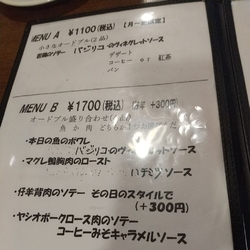 MENU A ¥1100(税込)
小さなオードブル(2品)
バジリコのヴィネグレットソース
デザート
コーヒー or 紅茶
パン
MENU B ¥1700(税込)
オードブル盛り合わせ
魚 か 肉
・本日の魚のポワレ
バジリコのヴィネグレットソース
・マグレ鴨胸肉のロースト
ハチミツソース
・仔羊背肉のソテー その日のスタイルで
(+300円)
・ヤシオポークロース肉のソテー
コーヒーみそキャラメルソース